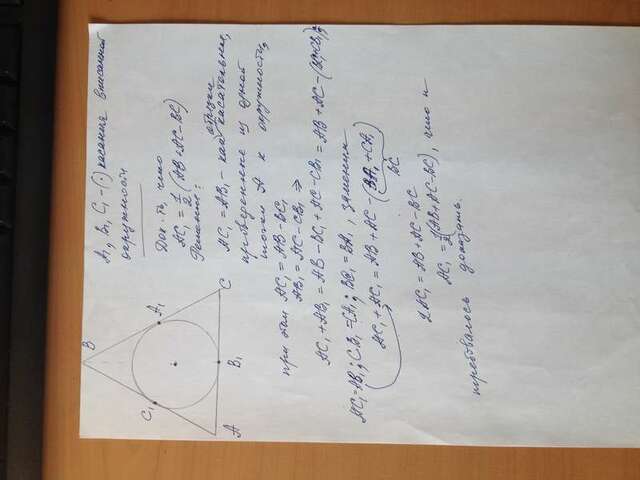 B
C₁
A₁
A
B₁
C
A₁, B₁, C₁ - (·) касания вписанной
окружности
Док-ть, что
AC₁ = 1/2 (AB + AC - BC)
Решение:
AC₁ = AB₁ - как отрезки касательных,
проведенные из одной
точки A к окружности,
при этом AC₁ = AB - BC₁
AB₁ = AC - CB₁ ⇒
AC₁ + AB₁ = AB - BC₁ + AC - CB₁ = AB + AC - (BC₁ + CB₁);
AC₁ = AB₁; CB₁ = CA₁; BC₁ = BA₁, заменим
AC₁ + AC₁ = AB + AC - (BA₁ + CA₁)
BC
2AC₁ = AB + AC - BC
AC₁ = 1/2 (AB + AC - BC), что и
требовалось доказать.